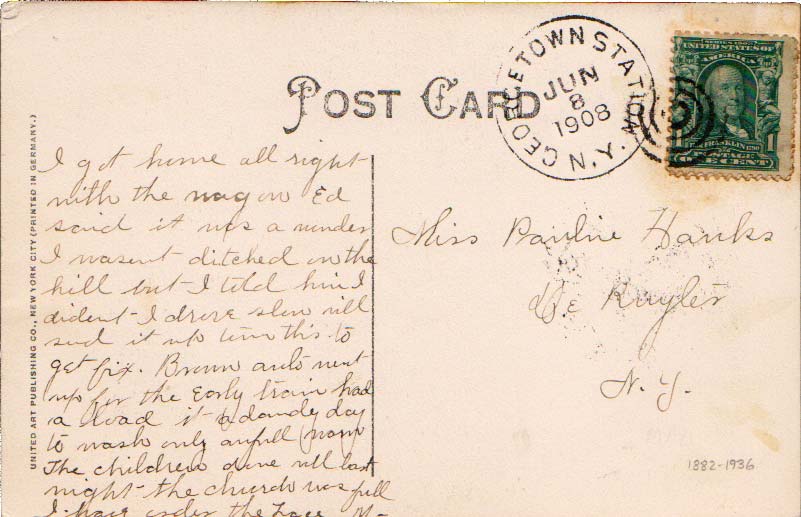 POST CARD
GEORGETOWN STATION
N.Y.
JUN
8
1908
SERIES 1902
UNITED STATES OF
AMERICA
1
POSTAGE
ONE CENT
UNITED ART PUBLISHING CO., NEW YORK CITY (PRINTED IN GERMANY.)
I got home all right
with the wagon Ed
said it was a wonder
I wasent ditched on the
hill but I told him I
dident I drove slow will
send it up this to
get fix. Brown auto went
up for the Early train had
a load it a dandy day
to wash only awfull warm
The children done well last
night the church was full
I have order the
Miss Pauline Hanks
De Ruyter
N.Y.
1882-1936